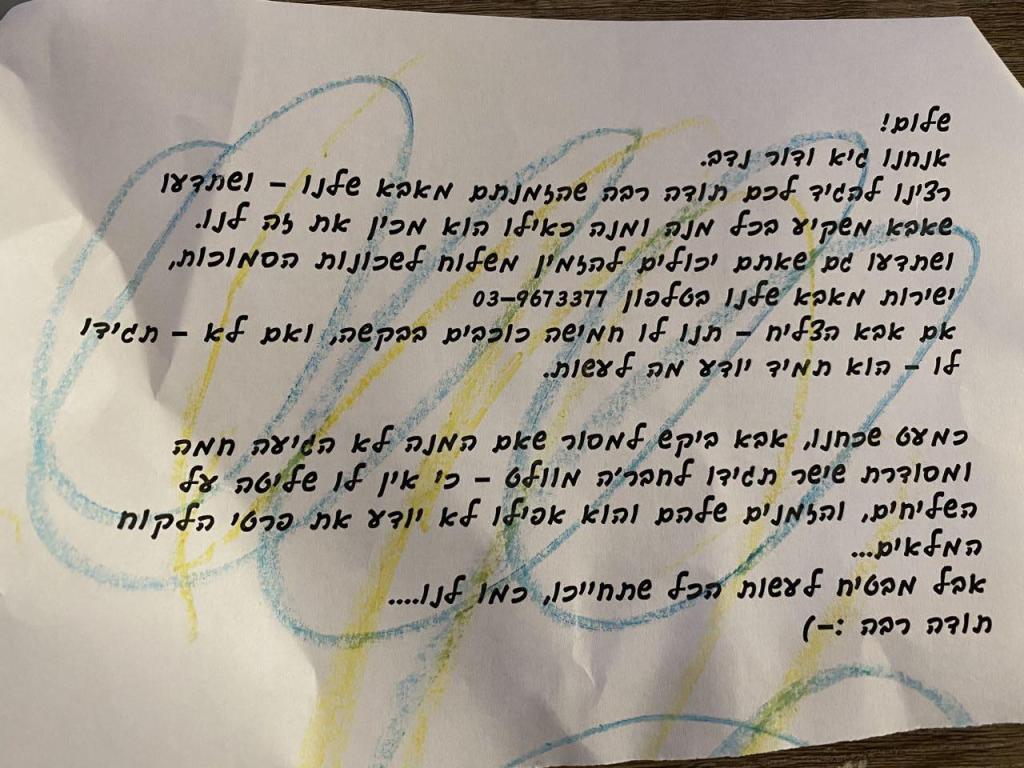 שלום!
אנחנו גיא ודור נדב.
רצינו להגיד לכם תודה רבה שהזמנתם מאבא שלנו – ושתדעו
שאבא משקיע בכל מנה ומנה כאילו הוא מכין את זה לנו.
ושתדעו גם שאתם יכולים להזמין משלוח לשכונות הסמוכות,
ישירות מאבא שלנו בטלפון 03-9673377
אם אבא הצליח – תנו לו חמישה כוכבים בבקשה, ואם לא – תגידו
לו – הוא תמיד יודע מה לעשות.
כמעט שכחנו, אבא ביקש למסור שאם המנה לא הגיעה חמה
ומסודרת שישר תגידו לחבר'ה מוולט – כי אין לו שליטה על
השליחים, והזמנים שלהם והוא אפילו לא יודע את פרטי הלקוח
המלאים...
אבל מבטיח לעשות הכל שתחייכו, כמו לנו....
תודה רבה :-)